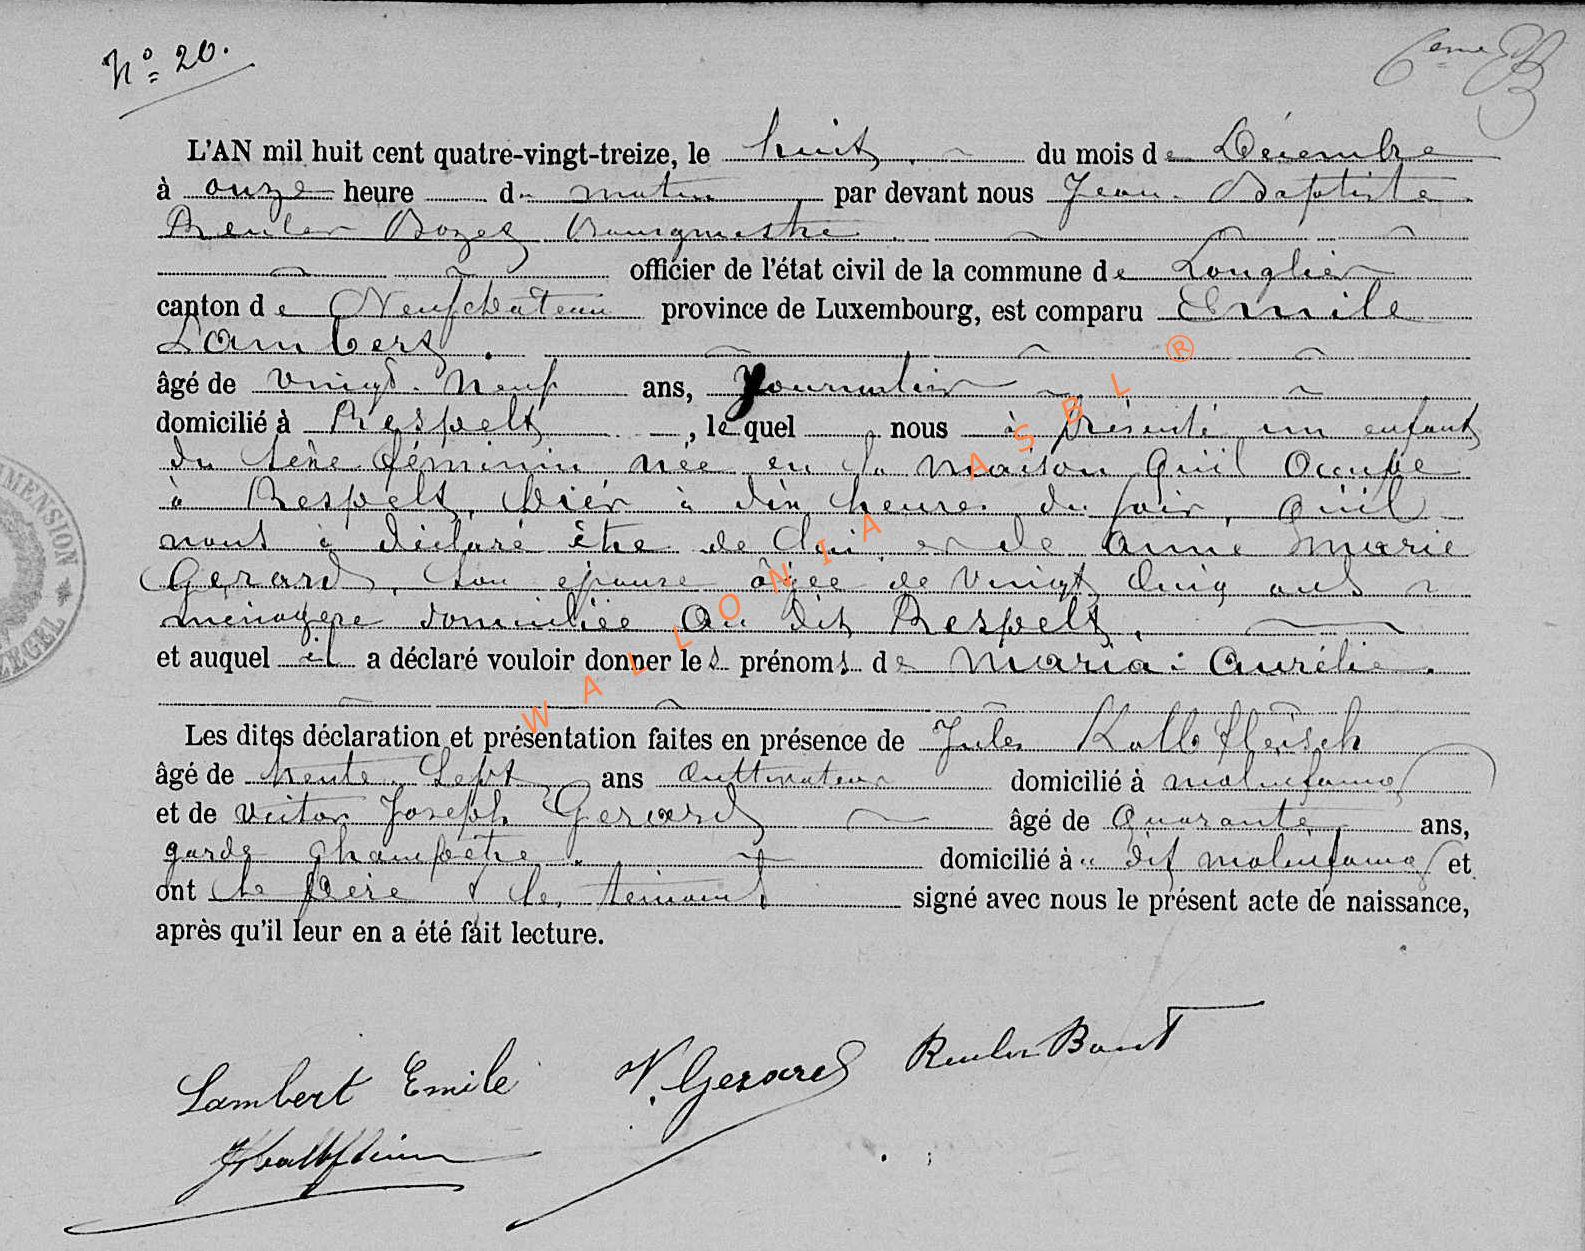 N° 20.
6eme
L'AN mil huit cent quatre-vingt-treize, le huit du mois de Décembre
à onze heure du matin par devant nous Jean Baptiste
Reuler Bourgmestre
officier de l'état civil de la commune de Longlier
canton de Neufchâteau province de Luxembourg, est comparu Emile
Lambert.
âgé de vingt neuf ans, Journalier
domicilié à Respelt, lequel nous à présenté un enfant
du sexe féminin née en la maison quil occupe
à Respelt, hier à dix heures du soir, quil
nous à déclaré être de lui et de Anne Marie
Gerard, son épouse âgée de vingt cinq ans
ménagère domiciliée au dit Respelt,
et auquel il a déclaré vouloir donner les prénoms de Maria : Aurélie.
Les dites déclaration et présentation faites en présence de Jules Kalbfleisch
âgé de trente sept ans Cultivateur domicilié à molinfaing
et de Victor Joseph Gerard âgé de Quarante ans,
garde Champêtre. domicilié à dit molinfaing et
ont le père & les témoins signé avec nous le présent acte de naissance,
après qu'il leur en a été fait lecture.
Lambert Emile V. Gerard Reuler
WALLONIA ASBL ®
MMENSION
ZEGEL